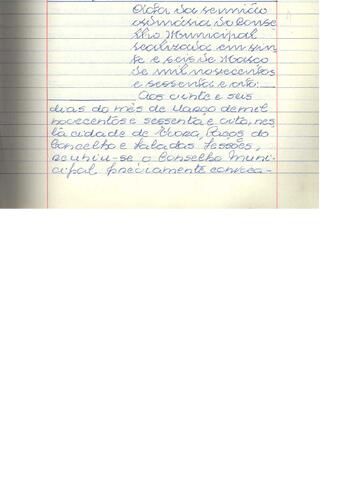 Acta da reunião
ordinária do Conse
lho Municipal
realizada em vin
te e seis de Março
de mil novecentos
e sessenta e oito:
Aos vinte e seis
dias do mês de Março de mil
novecentos e sessenta e oito, nes
ta cidade de Évora, Paços do
Concelho e Sala das Sessões,
reuniu-se o Conselho Muni-
cipal, préviamente convoca-